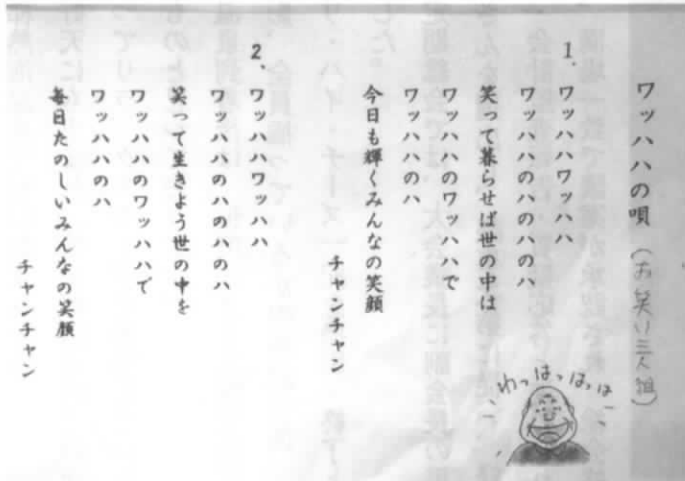 ワッハハの唄(お笑い三人組)
1.
ワッハハワッハハ
ワッハハのハのハのハ
笑って暮らせば世の中は
ワッハハのワッハハで
ワッハハのハ
今日も輝くみんなの笑顔
チャンチャン
2.
ワッハハワッハハ
ワッハハのハのハのハ
笑って生きよう世の中を
ワッハハのワッハハで
ワッハハのハ
毎日たのしいみんなの笑顔
チャンチャン
わっはっはっは